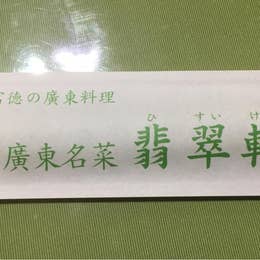 富徳の廣東料理
ひ すい け
廣東名菜 翡翠軒